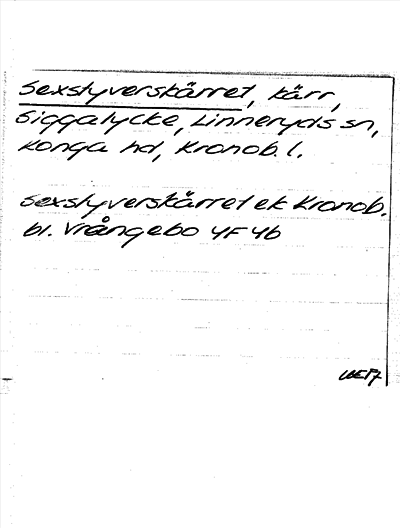 Sexstyverskärret, kärr,
Siggalycke, Linneryds sn,
Konga hd, Kronob. l.
Sexstyverskärret ek Kronob.
bl. Vrångebo 4F 4b